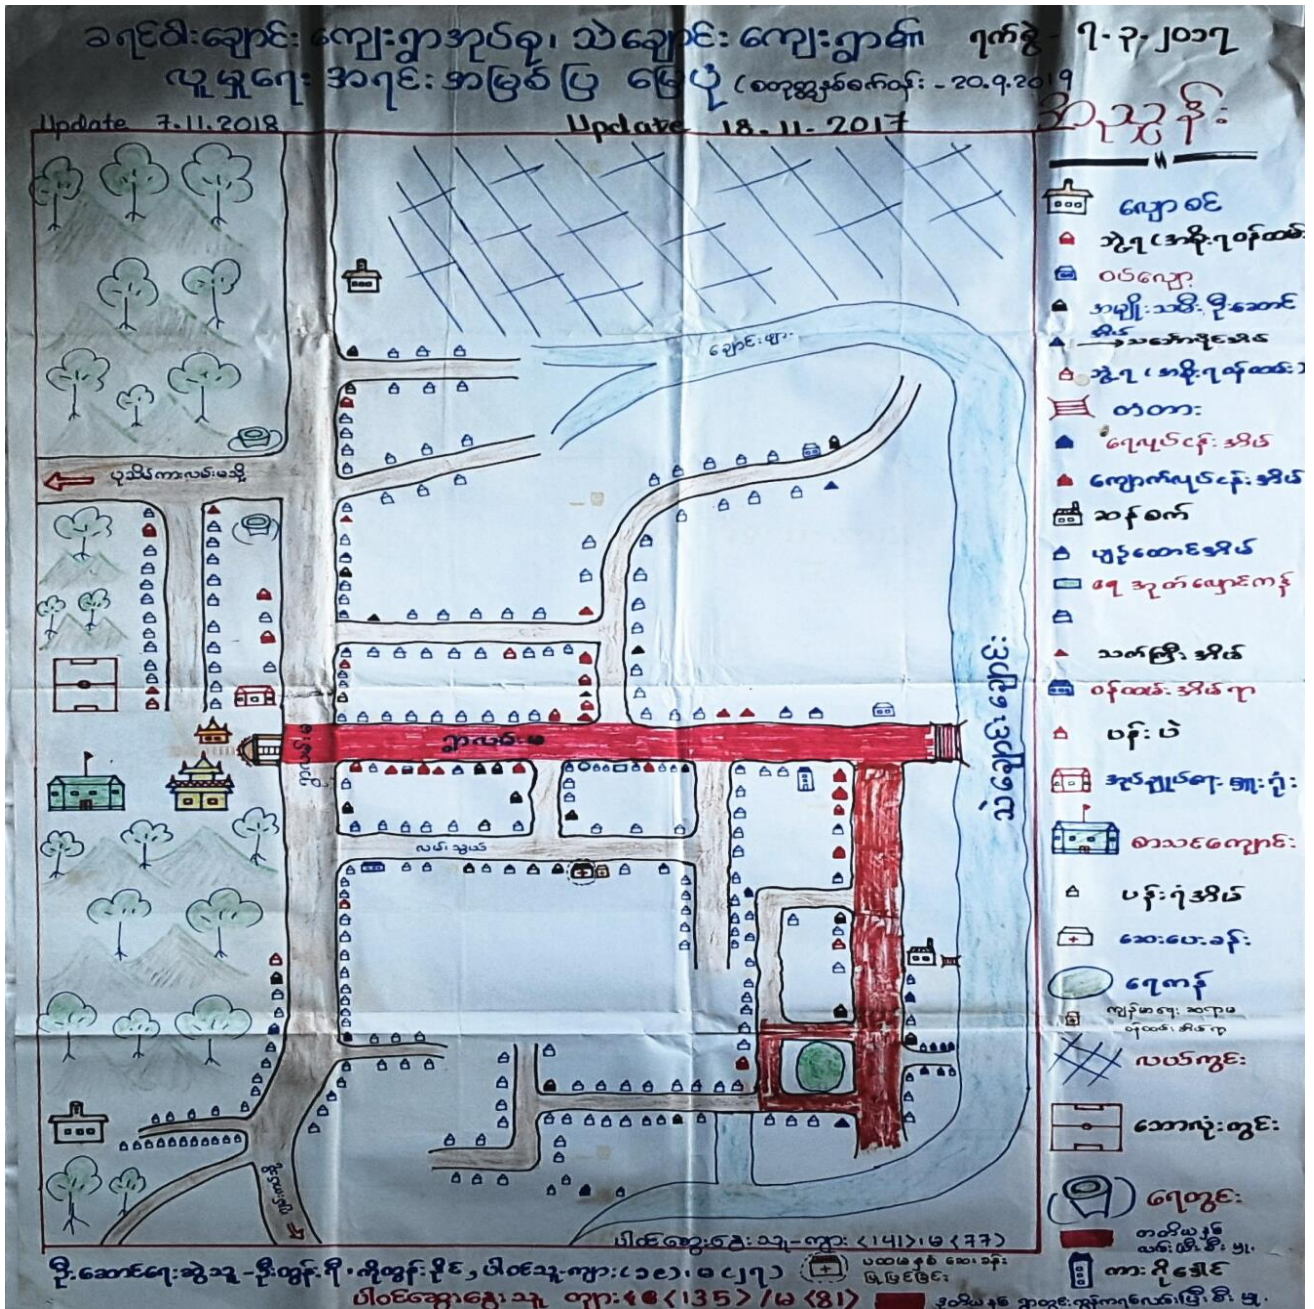 ခရင်ဝါးချောင်း ကျေးရွာအုပ်စု၊ သဲချောင်း ကျေးရွာ၏ ရက်စွဲ - ၇-၃-၂၀၁၇
လူမှုရေး အရင်းအမြစ်ပြ မြေပုံ (စတုတ္ထနှစ်စက်ဝန်း - 20.9.2019
Update 7.11.2018
Update 18.11.2017
အညွှန်း
လျှောစင်
ဘွဲ့ရ (အစိုးရဝန်ထမ်း
ဝပ်လျှော့
အမျိုးသမီးဦးဆောင်
အိမ်
ဘွဲ့ရ (အစိုးရဝန်ထမ်း)
တံတား
ရေလုပ်ငန်းအိမ်
ကျောက်လုပ်ငန်းအိမ်
ဆန်စက်
ပျဉ်ထောင်အိမ်
ရေအုတ်လှောင်ကန်
သက်ကြီးအိမ်
ဝန်ထမ်းအိမ်ရာ
ပန်းပဲ
အုပ်ချုပ်ရေးမှူးရုံး
စာသင်ကျောင်း
ပန်းရံအိမ်
ဆေးပေးခန်း
ရေကန်
ကျန်းမာရေးဆရာမ
ဝန်ထမ်းအိမ်ရာ
လယ်ကွင်း
ဘောလုံးကွင်း
ရေတွင်း
တတိယနှစ်
ချောင်းဖျား
ပုသိမ်ကားလမ်းမသို့
ရွာလမ်းမ
လမ်းသွယ်
ပါဝင်ဆွေးနွေးသူ - ကျား <141>၊ မ <77>
ဦးဆောင်ရေးဆွဲသူ - ဦးထွန်းရီ၊ ကိုထွန်းနိုင်၊ ပါဝင်သူ ကျား (၁၉)၊ မ (၂၇)
ပထမနှစ် ဆေးခန်း
ပြုပြင်ခြင်း
ပါဝင်ဆွေးနွေးသူ ကျား <135> / မ <81>